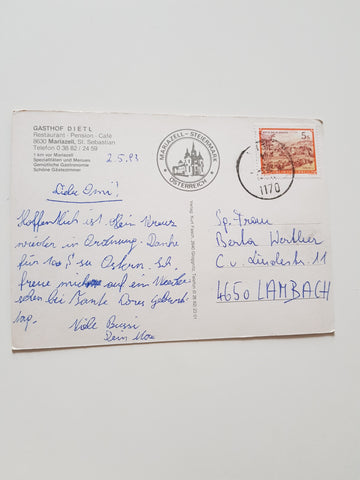 GASTHOF DIETL
Restaurant · Pension · Café
8630 Mariazell, St. Sebastian
Telefon 0 38 82 / 24 59
1 km vor Mariazell
Spezialitäten und Menues
Gemütliche Gastronomie
Schöne Gästezimmer
2.5.93
MARIAZELL - STEIERMARK
ÖSTERREICH
5 S
1170
Liebe Omi!
Hoffentlich ist Dein Kreuz
wieder in Ordnung. Danke
für 100,- zu Ostern. Ich
freue mich auf ein Wieder-
sehen bei Tante Doris Geburts-
tag.
Viele Bussi
Dein
Verlag Kurt
Sg. Frau
Berta Werther
C. v. Lindestr. 11
4650 LAMBACH